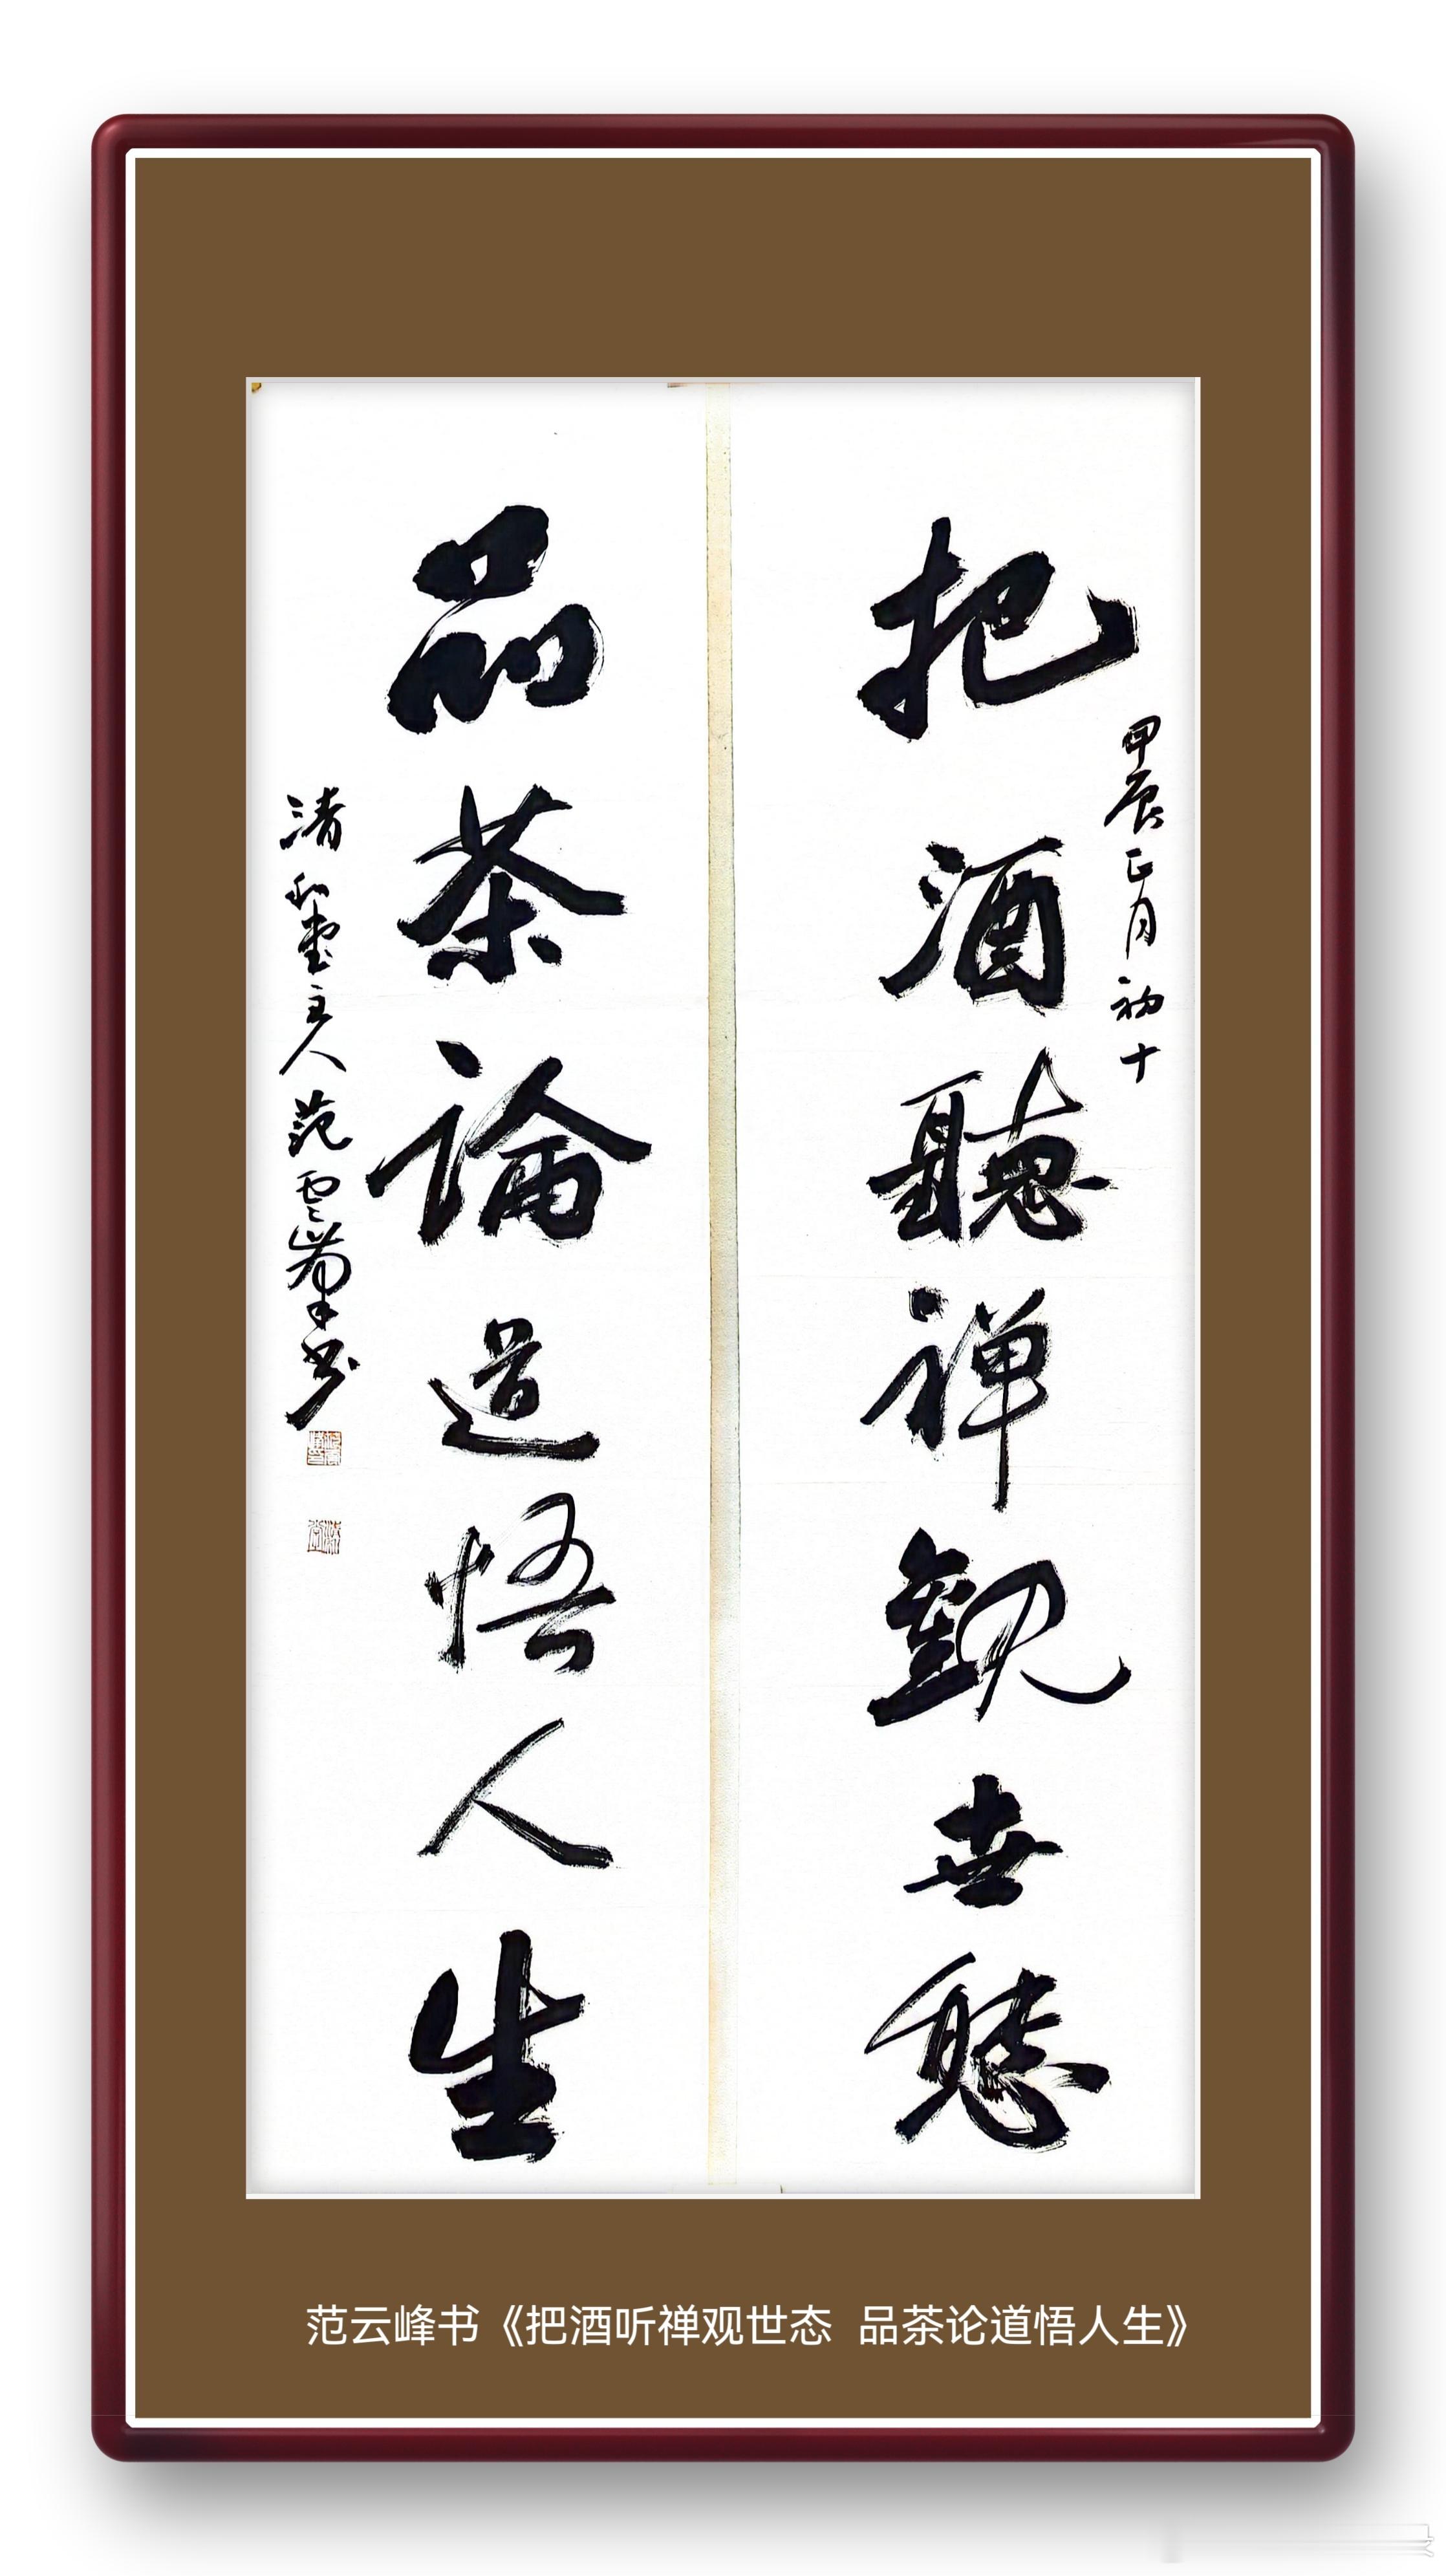 把酒聽禅觀世態
甲辰正月初十
品茶論道悟人生
清和堂主人范雲峰书
范云峰书《把酒听禅观世态 品茶论道悟人生》